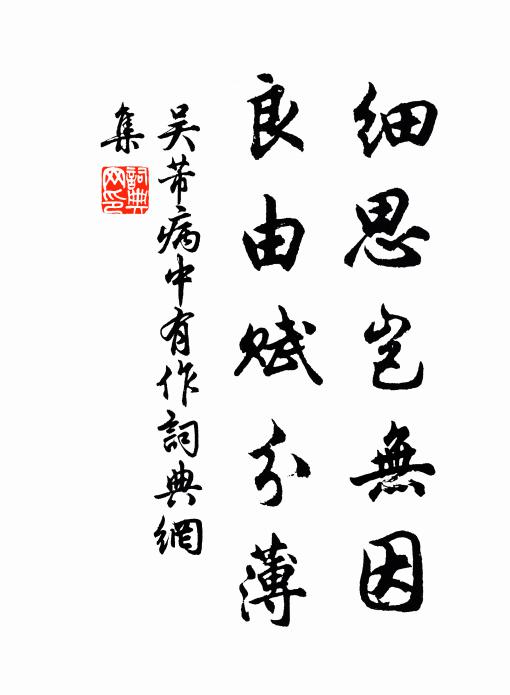 細思岂無因
良由赋分薄
吴芾病中有作詞典網
集
詞典
网印